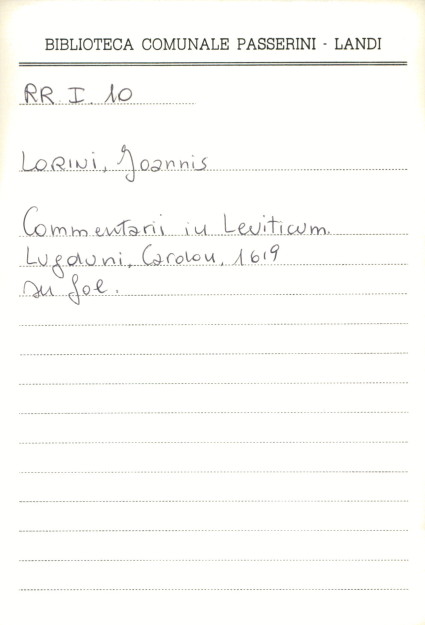 BIBLIOTECA COMUNALE PASSERINI - LANDI
RR. I. 10
LORINI, Joannis
Commentarii in Leviticum.
Lugduni, Cardon, 1619
in fol.